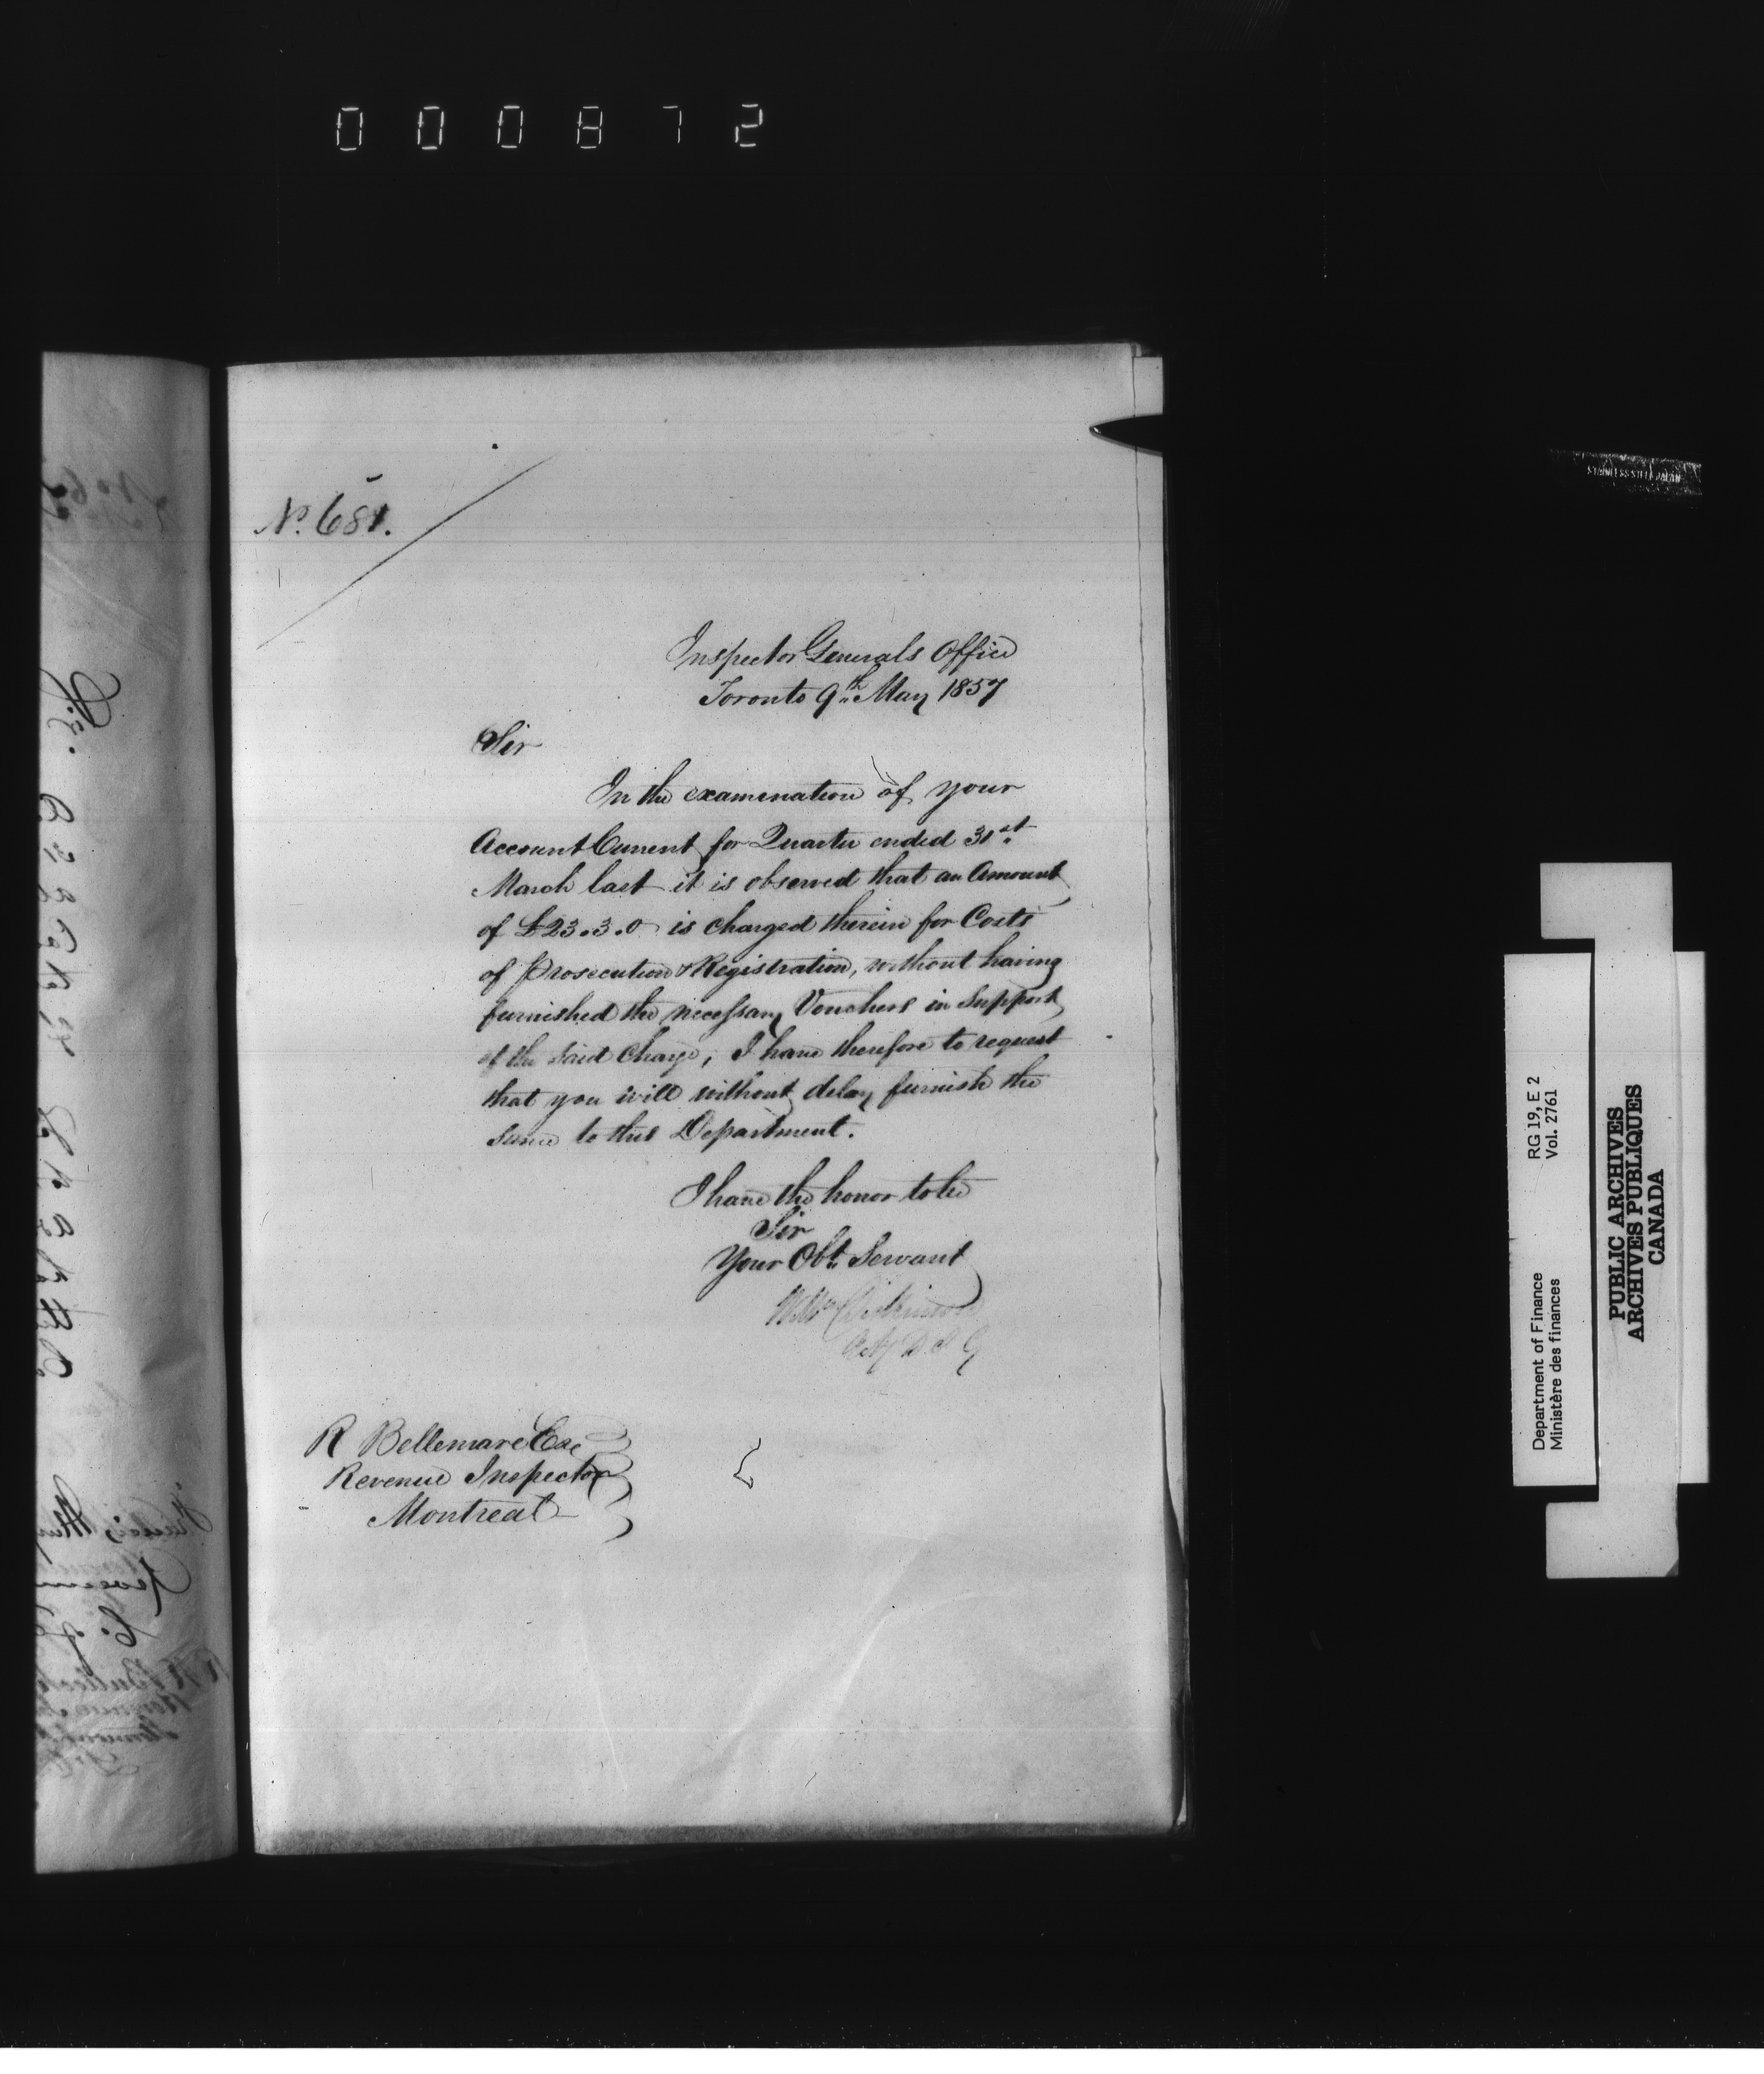 000872
No. 681.
Inspector Generals Office
Toronto 9th May 1857
Sir
In the examination of your
Account Current for Quarter ended 31st
March last it is observed that an Amount
of £23.3.0 is charged therein for Costs
of Prosecution & Registration, without having
furnished the necessary Vouchers in Support
of the said Charge, I have therefore to request
that you will without delay furnish the
same to this Department.
I have the honor to be
Sir
Your Obt. Servant
Wm Dickinson
R Bellemare Esq
Revenue Inspector
Montreal
STAINLESS STEEL JAPAN
Department of Finance RG 19, E 2
Ministère des finances Vol. 2761
PUBLIC ARCHIVES
ARCHIVES PUBLIQUES
CANADA